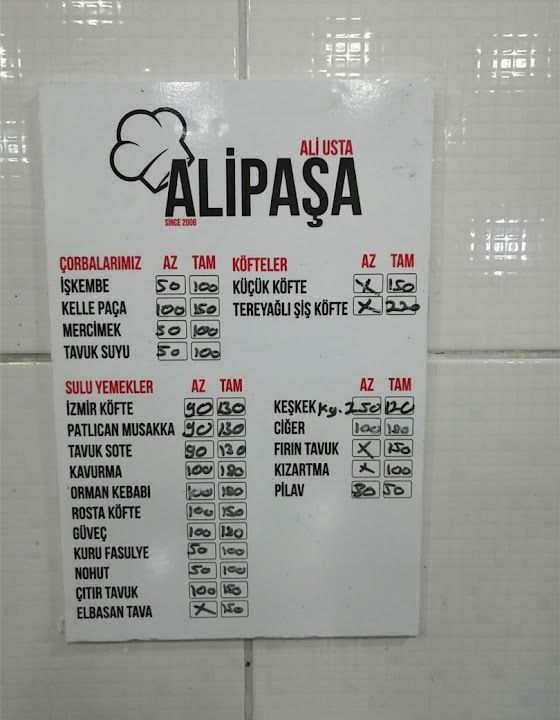 ALİ USTA
ALİPAŞA
SİNCE 2006
ÇORBALARIMIZ AZ TAM
İŞKEMBE 50 100
KELLE PAÇA 100 150
MERCİMEK 50 100
TAVUK SUYU 50 100
KÖFTELER AZ TAM
KÜÇÜK KÖFTE X 150
TEREYAĞLI ŞİŞ KÖFTE X 220
SULU YEMEKLER AZ TAM
İZMİR KÖFTE 90 130
PATLICAN MUSAKKA 90 130
TAVUK SOTE 90 130
KAVURMA 100 180
ORMAN KEBABI 100 180
ROSTA KÖFTE 100 150
GÜVEÇ 100 180
KURU FASULYE 50 100
NOHUT 50 100
ÇITIR TAVUK 100 150
ELBASAN TAVA X 150
AZ TAM
KEŞKEK Kg. 250 120
CİĞER 100 180
FIRIN TAVUK X 150
KIZARTMA X 100
PİLAV 50